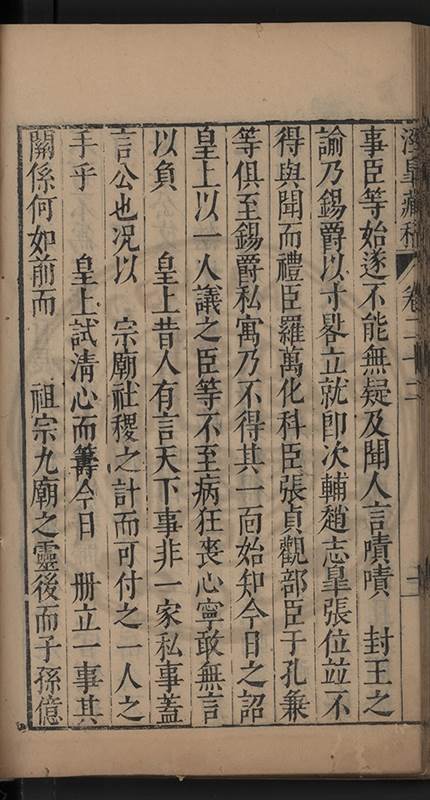 涇皐藏稿 卷二十二 十一
事臣等始遂不能無疑及聞人言嘖嘖 封王之
諭乃錫爵以寸晷立就卽次輔趙志臯張位並不
得與聞而禮臣羅萬化科臣張貞觀部臣于孔兼
等俱至錫爵私寓乃不得其一面始知今日之詔
皇上以一人議之臣等不至病狂喪心寧敢無言
以負 皇上昔人有言天下事非一家私事蓋
言公也况以 宗廟社稷之計而可付之一人之
手乎 皇上試清心而籌今日 冊立一事其
關係何如前而 祖宗九廟之靈後而子孫億